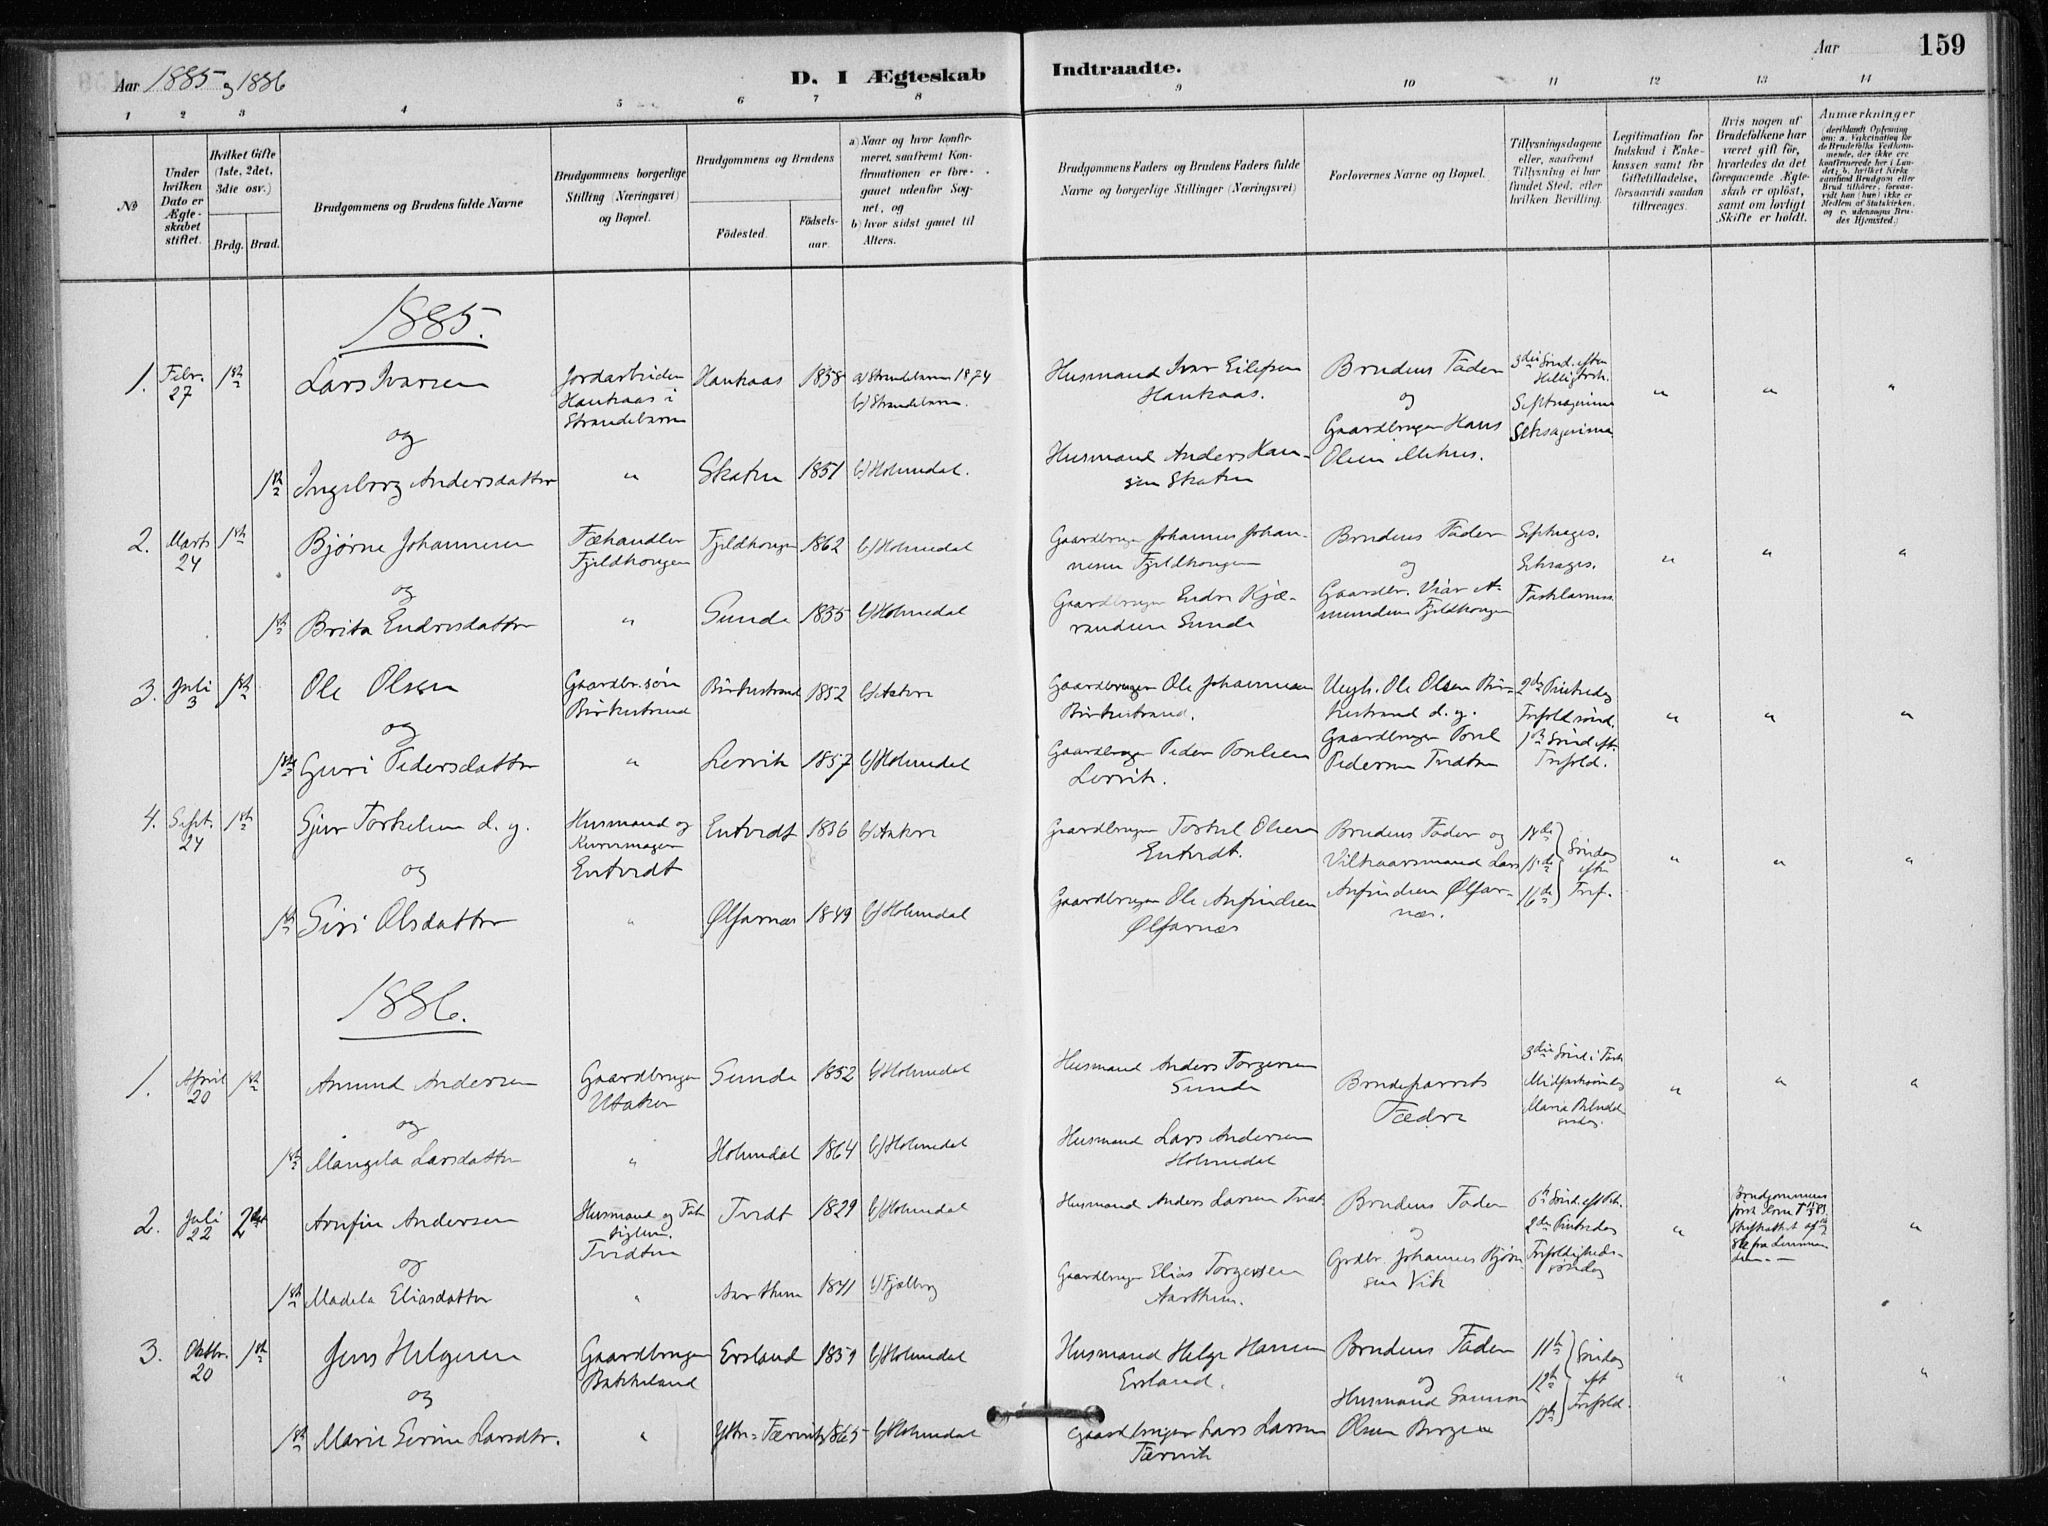 Aar 1885 og 1886
D. I Ægteskab Indtraadte.
Aar 159
1 2 3 4 5 6 7 8 9 10 11 12 13 14
No
Under hvilken Dato er Ægteskabet stiftet.
Hvilket Gifte (1ste, 2det, 3die osv.)
Brdg. Brud.
Brudgommens og Brudens fulde Navne
Brudgommens borgerlige Stilling (Næringsvei) og Bopæl.
Brudgommens og Brudens
Födested. Födselsaar.
a) Naar og hvor konfirmeret, saafremt Konfirmationen er foregaaet udenfor Sognet, og
b) hvor sidst gaaet til Alters.
Brudgommens Faders og Brudens Faders fulde Navne og borgerlige Stillinger (Næringsvei)
Forlovernes Navne og Bopæl.
Tillysningsdagene eller, saafremt Tillysning ei har fundet Sted, efter hvilken Bevilling.
Legitimation for Indskud i Enkekassen samt for Giftetilladelse, forsaavidt saadan tiltrænges.
Hvis nogen af Brudefolkene har været gift för, hvorledes da det foregaaende Ægteskab er oplöst, samt om lovligt Skifte er holdt.
Anmærkninger
1885.
1. Febr. 27 1ste Lars Ivarsen Jordarbeider Haukaas i Strandebarm Haukaas 1838 a) Strandebarm 1874 b) Strandebarm
Husmand Ivar Eilefsen Haukaas. Brudens Fader og Gaardbruger Hans Olsen Mehus. 3die Sönd. efter Helligtrek. Septuagesima Seksagesima " " "
1ste Ingeborg Andersdatter " Skaten 1851 b) Holmedal.
Husmand Anders Hansen Skaten
2. Marts 24 1ste Bjørne Johannesen Fæhandler Fjeldhougen Fjeldhougen 1862 b) Holmedal
Gaardbruger Johannes Johannesen Fjeldhougen Brudens Fader og Gaardbr. Amundsen Fjeldhougen Septuages. Seksages. " " "
og
1ste Brita Endresdatter " Sunde 1835 b) Holmedal
Gaardbruger Endre Sunde
3. Juli 3 1ste Ole Olsen Gaardbr. søn Birkestrand Birkestrand 1852 b) Aakre
Gaardbruger Ole Johannesen Birkestrand. Ungk. Ole Olsen Birkestrand d. y. Gaardbruger Pedersen Tvedten 2den Pintsedag Trefold. sønd. 1ste Sönd. eft. Trefold. " " "
og
1ste Guri Pedersdatter " Lervik 1857 b) Holmedal
Gaardbruger Peder Lervik.
4. Sept. 24 1ste Sjur Torkelsen d. y. Husmand og Kurvmager Entvedt Entvedt 1836 b) Aakre
Gaardbruger Torkel Olsen Entvedt. Brudens Fader og Vilkaarsmand Lars Anfindsen Ølfarnæs. 14de 15de 16de Söndag efter Tref. " " "
og
1ste Siri Olsdatter " Ølfarnæs 1849 b) Holmedal
Gaardbruger Ole Anfindsen Ølfarnæs
1886.
1. April 20 1ste Amund Andersen Gaardbruger Utaker Sunde 1852 b) Holmedal
Husmand Anders Torgersen Sunde Brudeparrets Fædre 3die Sönd. i Faste Midfastesöndag Maria Bebudelsesdag. " " "
og
1ste Mangela Larsdatter " Holmedal 1864 b) Holmedal
Husmand Lars Andersen Holmedal
2. Juli 22 2det Anfin Andersen Husmand og Tvedten Tvedt 1829 b) Holmedal
Husmand Anders Larsen Tvedt Brudens Fader og Grdbr. Johannes Bjørnsen Vik 2den Pintsedag Trefoldighedssöndag " Brudgommens "
og
1ste Madela Eliasdatter " Aarthun 1841 b) Fjelberg
Gaardbruger Elias Torgersen Aarthun.
3. Oktbr. 20 1ste Jens Helgesen Gaardbruger Bakkeland Ersland 1859 b) Holmedal
Husmand Helge Hansen Ersland. Brudens Fader og Husmand Samson Olsen Bergen 11te 12te 13te Söndag eft. Trefold. " " "
og
1ste Marie Serine Larsdtr. " Ytre-Tærvik 1865 b) Holmedal
Gaardbruger Lars Larsen Tærvik